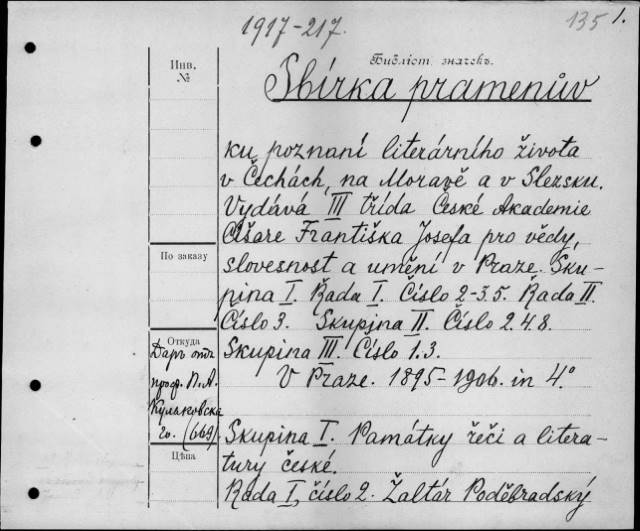 1917-217.
135 1.
Инв.
№
Библіот. значекъ.
Sbírka pramenův
ku poznaní literárního života
v Čechách, na Moravě a v Slezsku.
Vydává III třída České Akademie
Císaře Františka Josefa pro vědy,
По заказу
slovesnost a umění v Praze. Sku-
pina I. Řada I. Číslo 2-3.5. Řada II.
Číslo 3. Skupina II. Číslo 2.4.8.
Откуда
Skupina III. Číslo 1.3.
Даръ отъ
проф. П. А.
Кулаковска
го. (669).
V Praze. 1895-1906. in 4º
Skupina I. Památky řeči a litera-
Цѣна
tury české.
Řada I, číslo 2. Žaltár Poděbradský